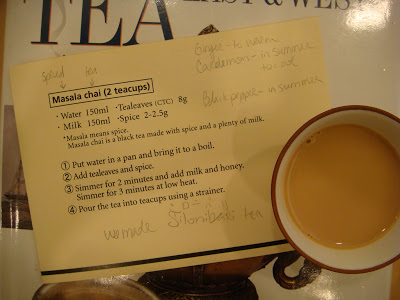 TEA EAST & WEST
Ginger - to warm
Cardemon - in summer
to cool
spiced tea
Black pepper - in summer
Masala chai (2 teacups)
· Water 150ml · Tealeaves (CTC) 8g
· Milk 150ml · Spice 2-2.5g
*Masala means spice.
Masala chai is a black tea made with spice and a plenty of milk.
① Put water in a pan and bring it to a boil.
② Add tealeaves and spice.
③ Simmer for 2 minutes and add milk and honey.
Simmer for 3 minutes at low heat.
④ Pour the tea into teacups using a strainer.
we made tea